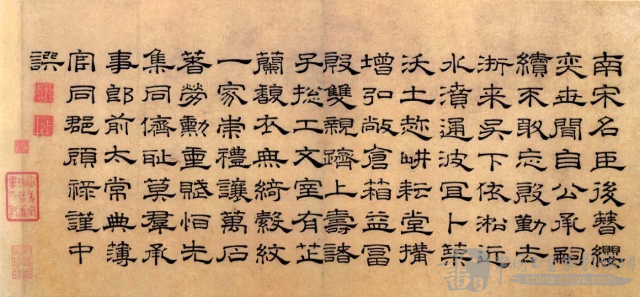 南宋名臣後簪纓
奕世閒自公承嗣
續不敢忘殷勤去
浙来吴下依淞近
水濆通波冝卜築
沃土趂畊耘堂搆
增弘敞倉箱益冨
殷雙親躋上壽諸
子捴工文室有芷
蘭馥衣無綺縠紋
一家崇禮讓萬石
著勞勳重賦恒先
集同儕耻莫羣承
事郎前太常典簿
官同郡顧祿謹中
譔